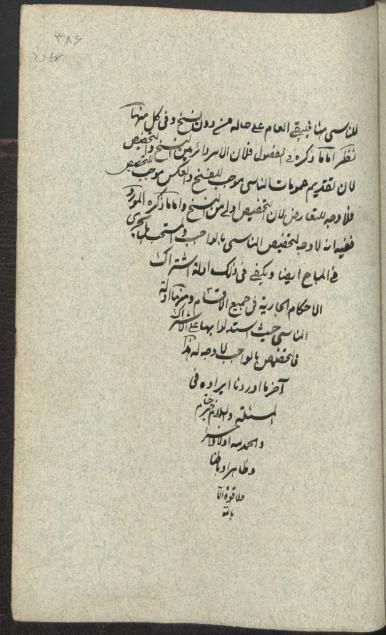 ٣٨٦
للناسي منا فيبقى العام على حاله من دون نسخ وفي كل منهما
نظر اما ما ذكره في الفصول فلان الامر دائر بين النسخ والتخصيص
لان تقديم عمومات الناسي موجب للنسخ والعكس موجب للتخصيص
فلا وجه للتعارض لان التخصيص اولى من النسخ واما ما ذكره المورد
ففيه انه لا وجه لتخصيص الناسي بالواجب والمستحب بل يجري
في المباح ايضا ويكفي في ذلك ادلة اشتراك
الاحكام الجارية في جميع الاقسام ومنها ادلة
الناسي حيث استدلوا بها على الاشتراك
فالتخصيص بالواجب لا وجه له هذا
آخر ما اوردنا ايراده في
المسئلة والسلام خير ختام
والحمد لله اولا وآخرا
وظاهرا وباطنا
ولا قوة الا
بالله